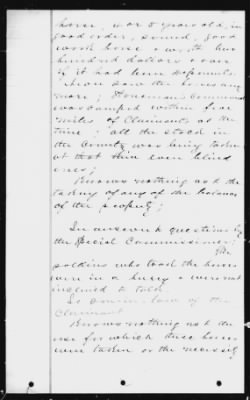 horse, was 5 years old, in
good order, sound, good
work horse & worth two
hundred dollars & over
if it had been
never saw the horse any
more; Command
was camped within five
miles of Claimants at the
time; all the stock in
the County was being taken
at that time even blind
ones;
Knows nothing as to the
taking of any of the balance
of the property;
In answer to questions by
the Special Commissioner:
The
soldiers who took the horse
were in a hurry & were not
inclined to talk.
Is son-in-law of the
Claimant
Knows nothing as to the
use for which these horses
were taken or the necessity